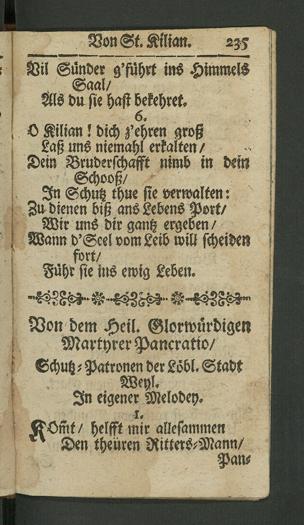 Von St. Kilian. 235
Vil Sünder g'führt ins Himmels
Saal/
Als du sie hast bekehret.
6.
O Kilian! dich z'ehren groß
Laß uns niemahl erkalten/
Dein Bruderschafft nimb in dein
Schooß/
In Schutz thue sie verwalten:
Zu dienen biß ans Lebens Port/
Wir uns dir gantz ergeben/
Wann d'Seel vom Leib will scheiden
fort/
Führ sie ins ewig Leben.
Von dem Heil. Glorwürdigen
Martyrer Pancratio/
Schutz-Patronen der Löbl. Stadt
Weyl.
In eigener Melodey.
1.
Kom̃t/ helfft mir allesammen
Den theüren Ritters-Mann/
Pan-